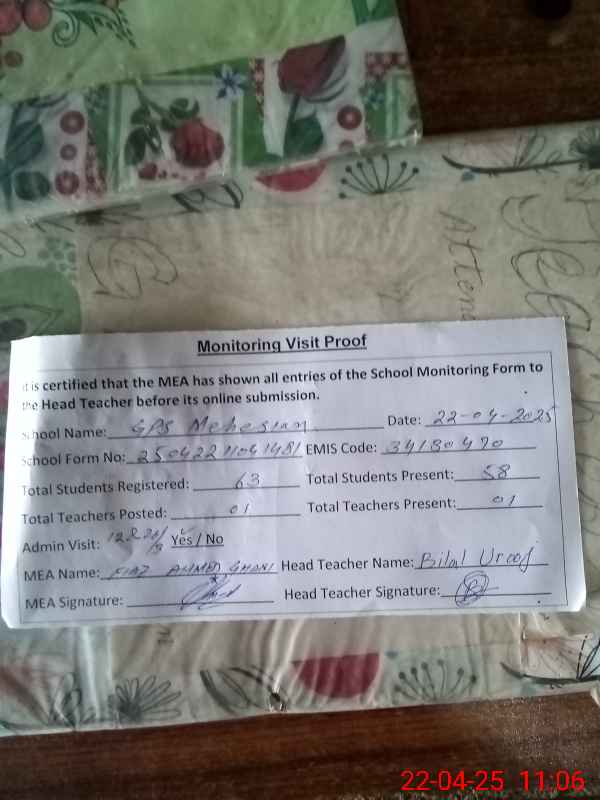 Atten
Monitoring Visit Proof
it is certified that the MEA has shown all entries of the School Monitoring Form to
the Head Teacher before its online submission.
School Name: GPS Mehesian Date: 22-04-2025
School Form No: EMIS Code: 34180470
Total Students Registered: 63 Total Students Present: 58
Total Teachers Posted: 01 Total Teachers Present: 01
Admin Visit: Yes / No
MEA Name: FIAZ AHMED GHANI Head Teacher Name: Bilal Uroof
MEA Signature: Head Teacher Signature:
22-04-25 11:06